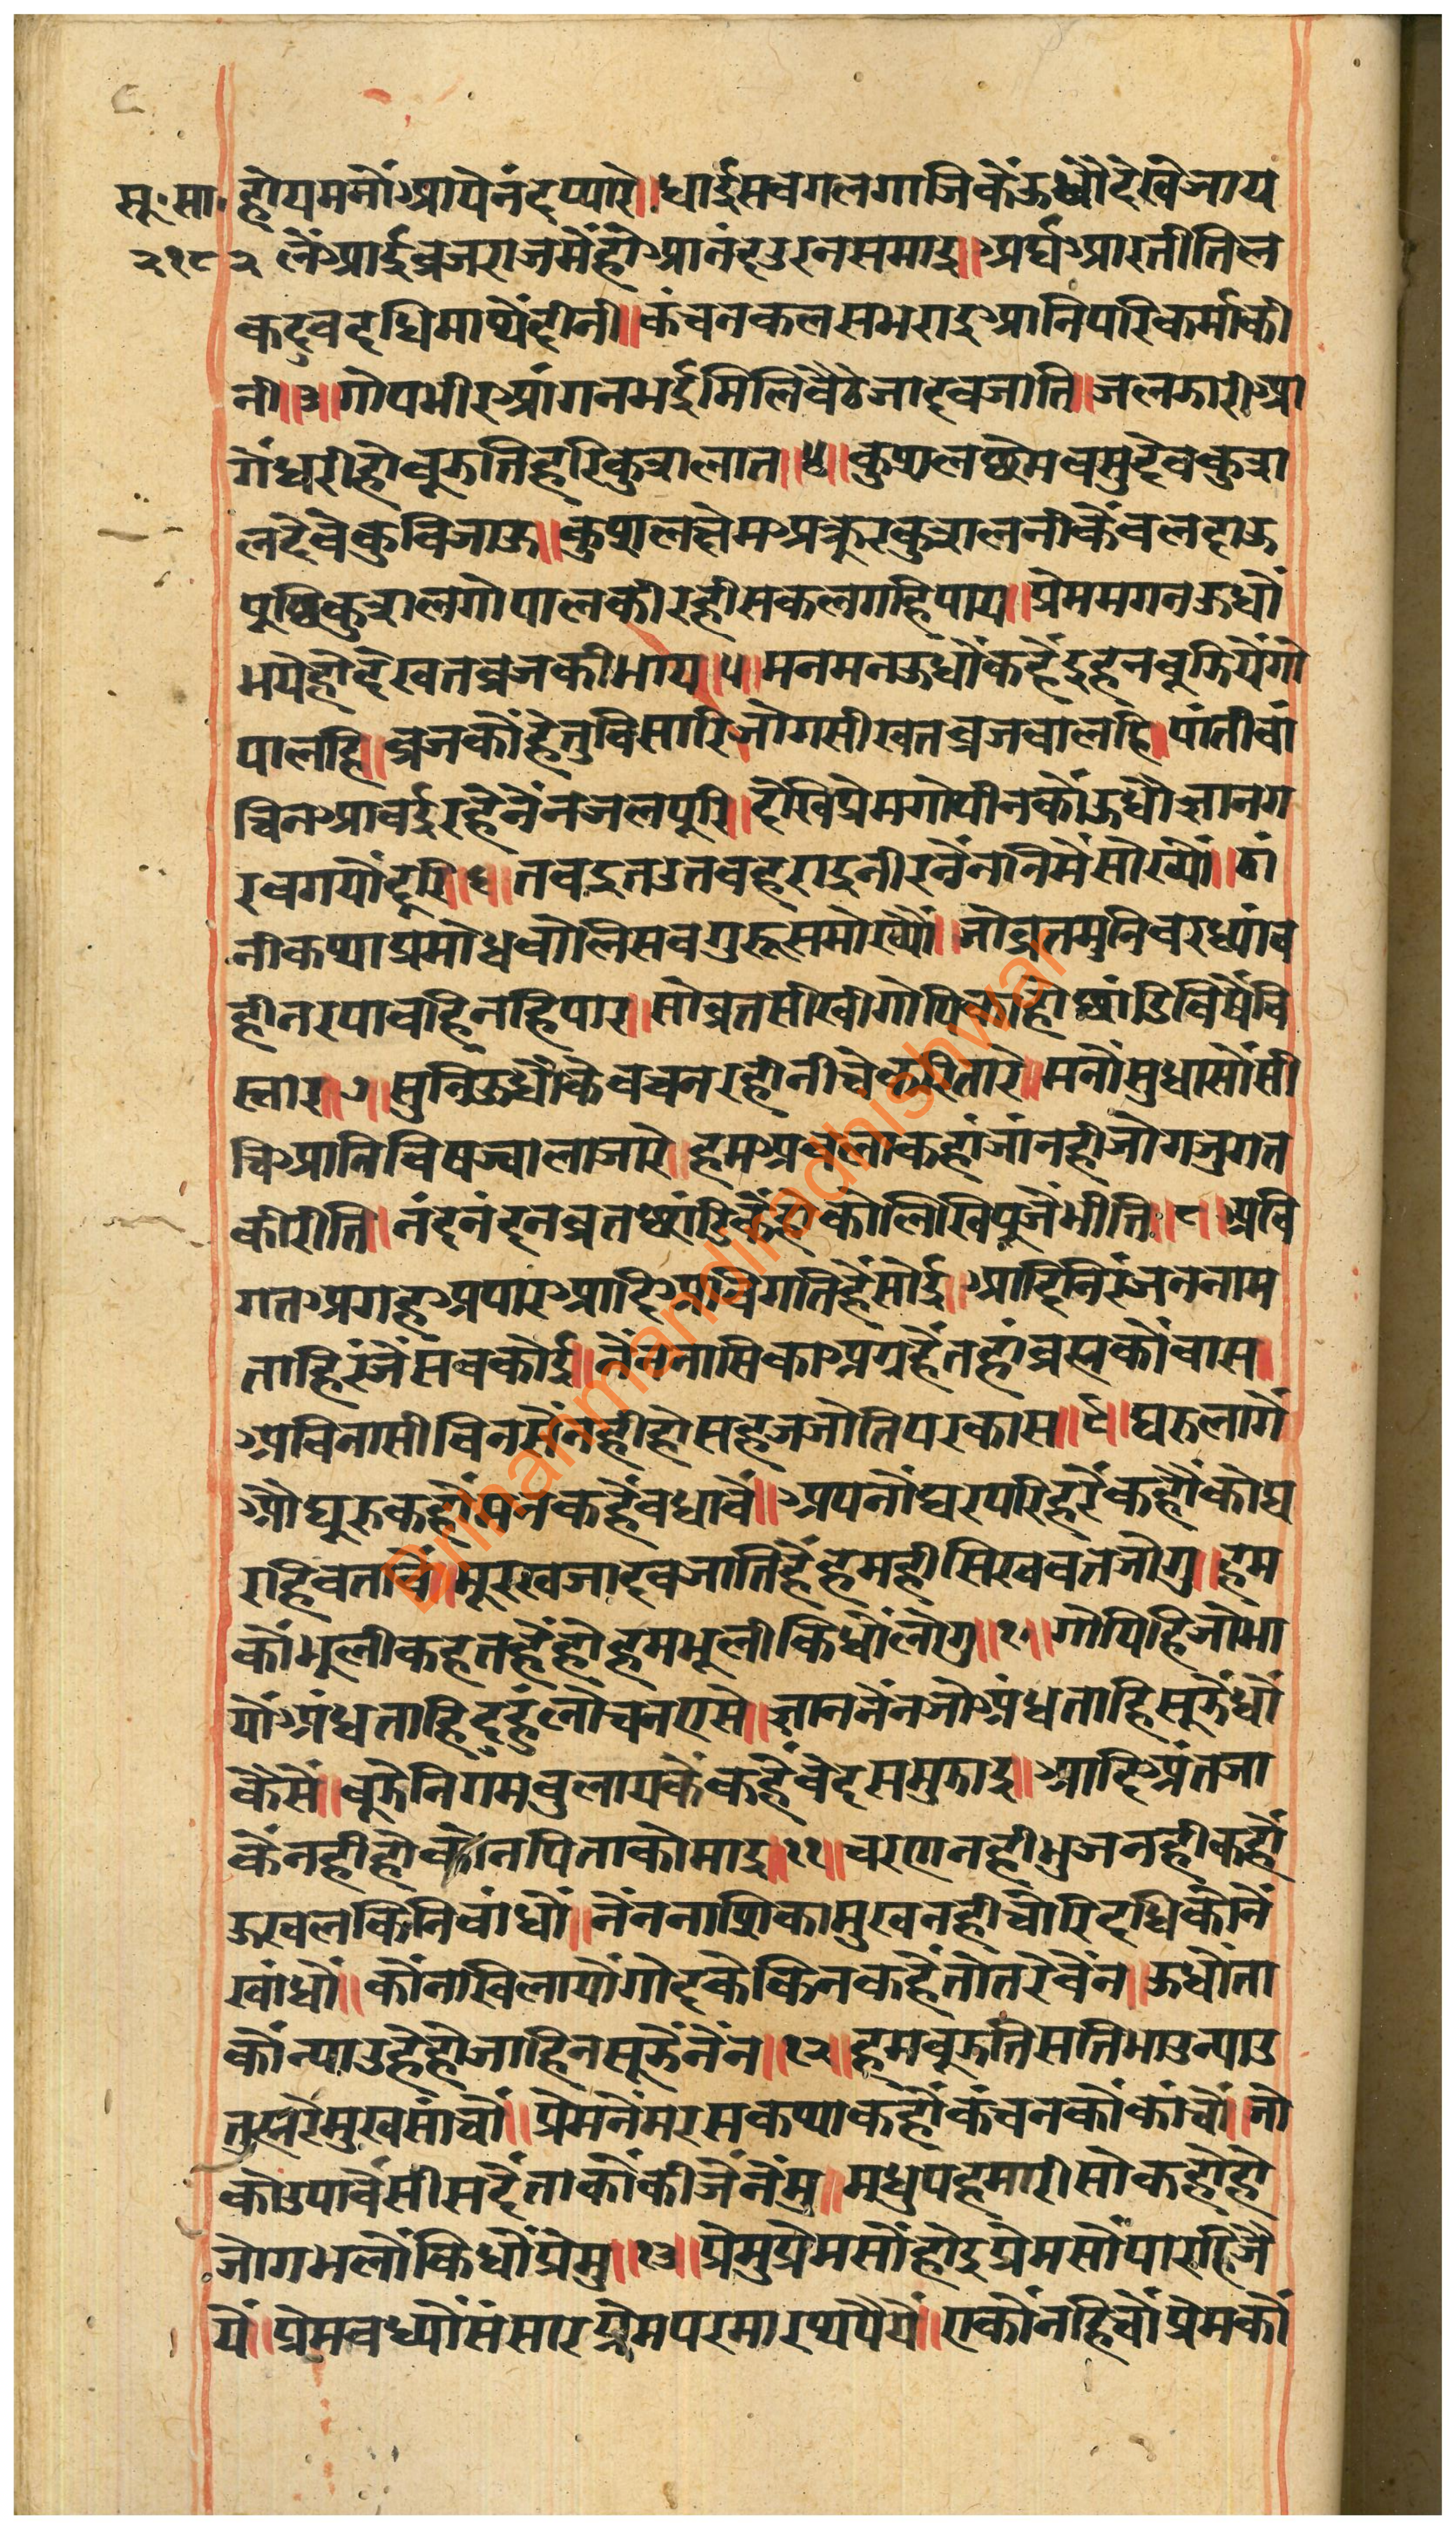 सू॰ सा॰ होयममनौं आयेनंदप्यारे॥ धाईसबगलगाजिकेंऊधौंदेखेजाय
२१८२ लैंआईब्रजराजमेंहो आनंदउरनसमाइ॥ अर्घआरतीतिल
कदुबदधिमाथैंदीनी॥ कंचनकलसभराइ आनिपरिकर्माकी
नी॥३॥ गोपभीर आंगनभईमिलिबैठेजादवजाति॥ जलझारी आ
गेंधरीहोबूझतिहरिकुशलात॥४॥ कुशलछेमबसुदेवकुश
लदेवेकुविजाऊ॥ कुशलछेम अक्रूरकुशलनीकेंबलदाऊ
पूछिकुशलगोपालकीरहीसकलगहिपाय॥ प्रेममगनऊधौं
भयेहोदेखतब्रजकीभाय॥५॥ मनमनऊधौंकहैंइहनबूझियेंगो
पालहि॥ ब्रजकौंहेतुविसारिजोगसीखतब्रजबालहि॥ पांतीबां
चिन आवईरहेनैंनजलपूरि॥ देखिप्रेमगोपीनकौंऊधौज्ञानग
रबगयौंदूरि॥६॥ तबइतउतबहराइनीरनैंननिमेंसोख्यौं॥ ठां
नीकथाप्रमोधबोलिसबगुरूसमोख्यौं॥ जोब्रतमुनिवरध्यांव
हीनरपावहिनहिपार॥ सोब्रतसीखीगोपिकाहोछांडिविषैंवि
स्तार॥७॥ सुनिऊधौंकेबचनरहीनीचेकरितारे॥ मनौंसुधासौंसी
चि आनिविषज्वालाजारे॥ हम अबलाकहांजांनहीजोगजुगत
कीरीति॥ नंदनंदनब्रतछांडिकेंहोकोलिखिपूजैंभीति॥८॥ अवि
गत अगह अपार आदि अविगतिहैंसोई॥ आदिनिरंजननाम
ताहिरंजैंसबकोई॥ नैंननासिका अग्रहैंतहांब्रह्मकौंबास॥
अविनासीविनसेंनहीहोसहजजोतिपरकास॥९॥ घरुलागें
औघूरुकहौंमनकहैंबधावें॥ अपनौंघरपरिहरैंकहौंकोघ
रहिबतावें॥ मूरखजादवजातिहैंहमहीसिखवतजोगु॥ हम
कोंभूलीकहतहैंहोहमभूलीकिधौंलोगु॥१०॥ गोपिहिजोभा
यौं अंधताहिदुहुंलोचनएसे॥ ज्ञाननैंनजो अंधताहिसूझैंधौं
कैसें॥ बूझेनिगमबुलायकेंकहैंवेदसमुझाइ॥ आदि अंतजा
कैंनहीहोकोनपिताकोमाइ॥११॥ चरणनहीभुजनहीकहौं
ऊखलकिनिबांधौं॥ नैंननाशिकामुखनहीचोरिदधिकौनें
खांधौं॥ कौंनखिलायौगोदकेकिनकहेंतोतरेबैंन॥ ऊधौंता
कौंन्याउहैहोजाहिनसूझैंनैंन॥१२॥ हमबूझतिसतिभाउन्याउ
तुह्मरेमुखसांचौं॥ प्रेमनेंमरसकथाकहौंकंचनकौंकांचौं॥ जो
कोउपावैंसीसदैंताकौंकीजैंनेंमु॥ मधुपहमारीसोकहोहो
जोगभलौंकिधौंप्रेमु॥१३॥ प्रेमुप्रेमसोंहोइप्रेमसोंपारहिजै
यें॥ प्रेमबध्यौंसंसारप्रेमपरमारथपैयें॥ एकौंनहिचौंप्रेमकौं